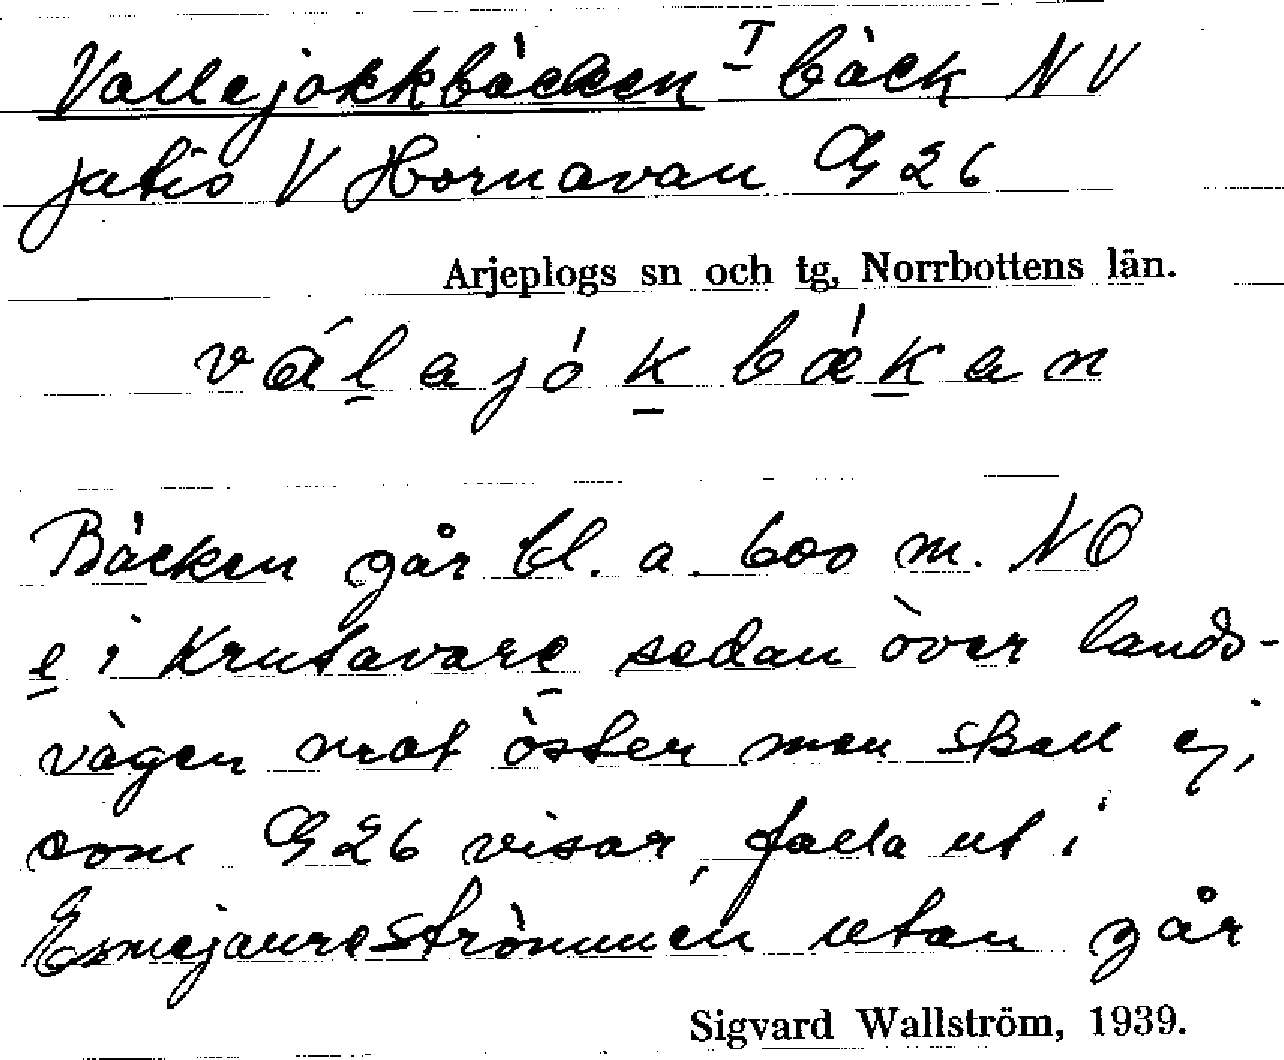 Vallejokkbäcken I bäck NV
Jutis V Hornavan G 26
Arjeplogs sn och tg, Norrbottens län.
válajók bækan
Bäcken går bl. a. 600 m. NO
e i Krutavare sedan över lands-
vägen mot öster men skall ej,
som G 26 visar, falla ut i
Esmejaureströmmen utan går
Sigvard Wallström, 1939.